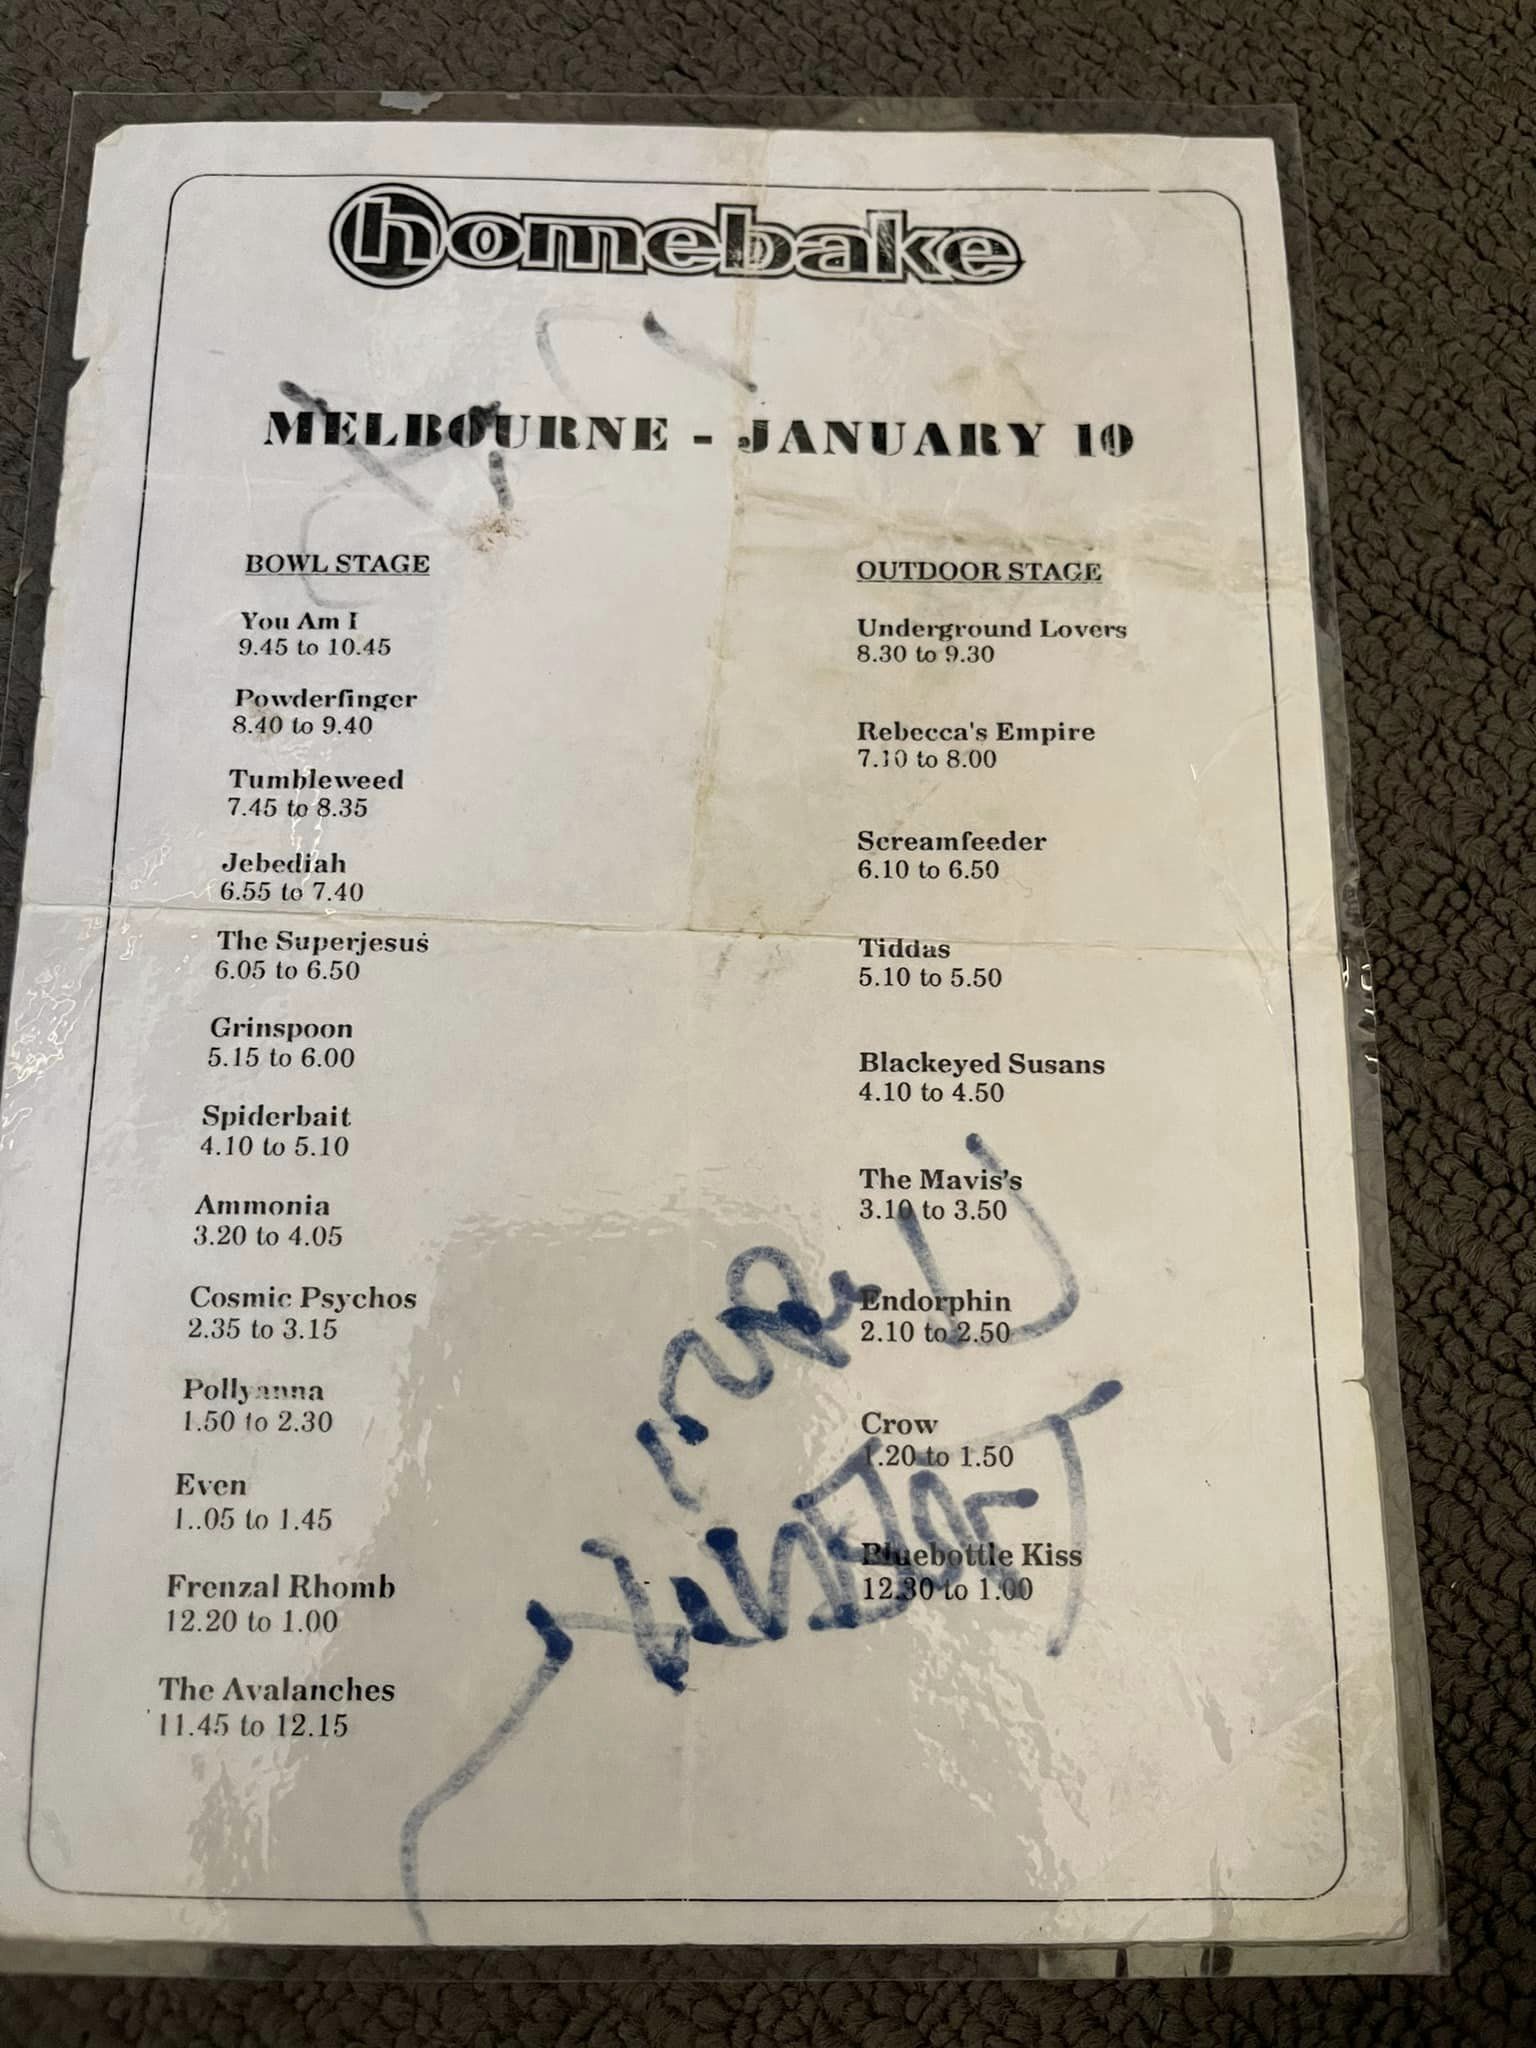 homebake
MELBOURNE - JANUARY 10
BOWL STAGE
You Am I
9.45 to 10.45
Powderfinger
8.40 to 9.40
Tumbleweed
7.45 to 8.35
Jebediah
6.55 to 7.40
The Superjesus
6.05 to 6.50
Grinspoon
5.15 to 6.00
Spiderbait
4.10 to 5.10
Ammonia
3.20 to 4.05
Cosmic Psychos
2.35 to 3.15
Pollyanna
1.50 to 2.30
Even
1..05 to 1.45
Frenzal Rhomb
12.20 to 1.00
The Avalanches
11.45 to 12.15
OUTDOOR STAGE
Underground Lovers
8.30 to 9.30
Rebecca's Empire
7.10 to 8.00
Screamfeeder
6.10 to 6.50
Tiddas
5.10 to 5.50
Blackeyed Susans
4.10 to 4.50
The Mavis's
3.10 to 3.50
Endorphin
2.10 to 2.50
Crow
1.20 to 1.50
Bluebottle Kiss
12.30 to 1.00